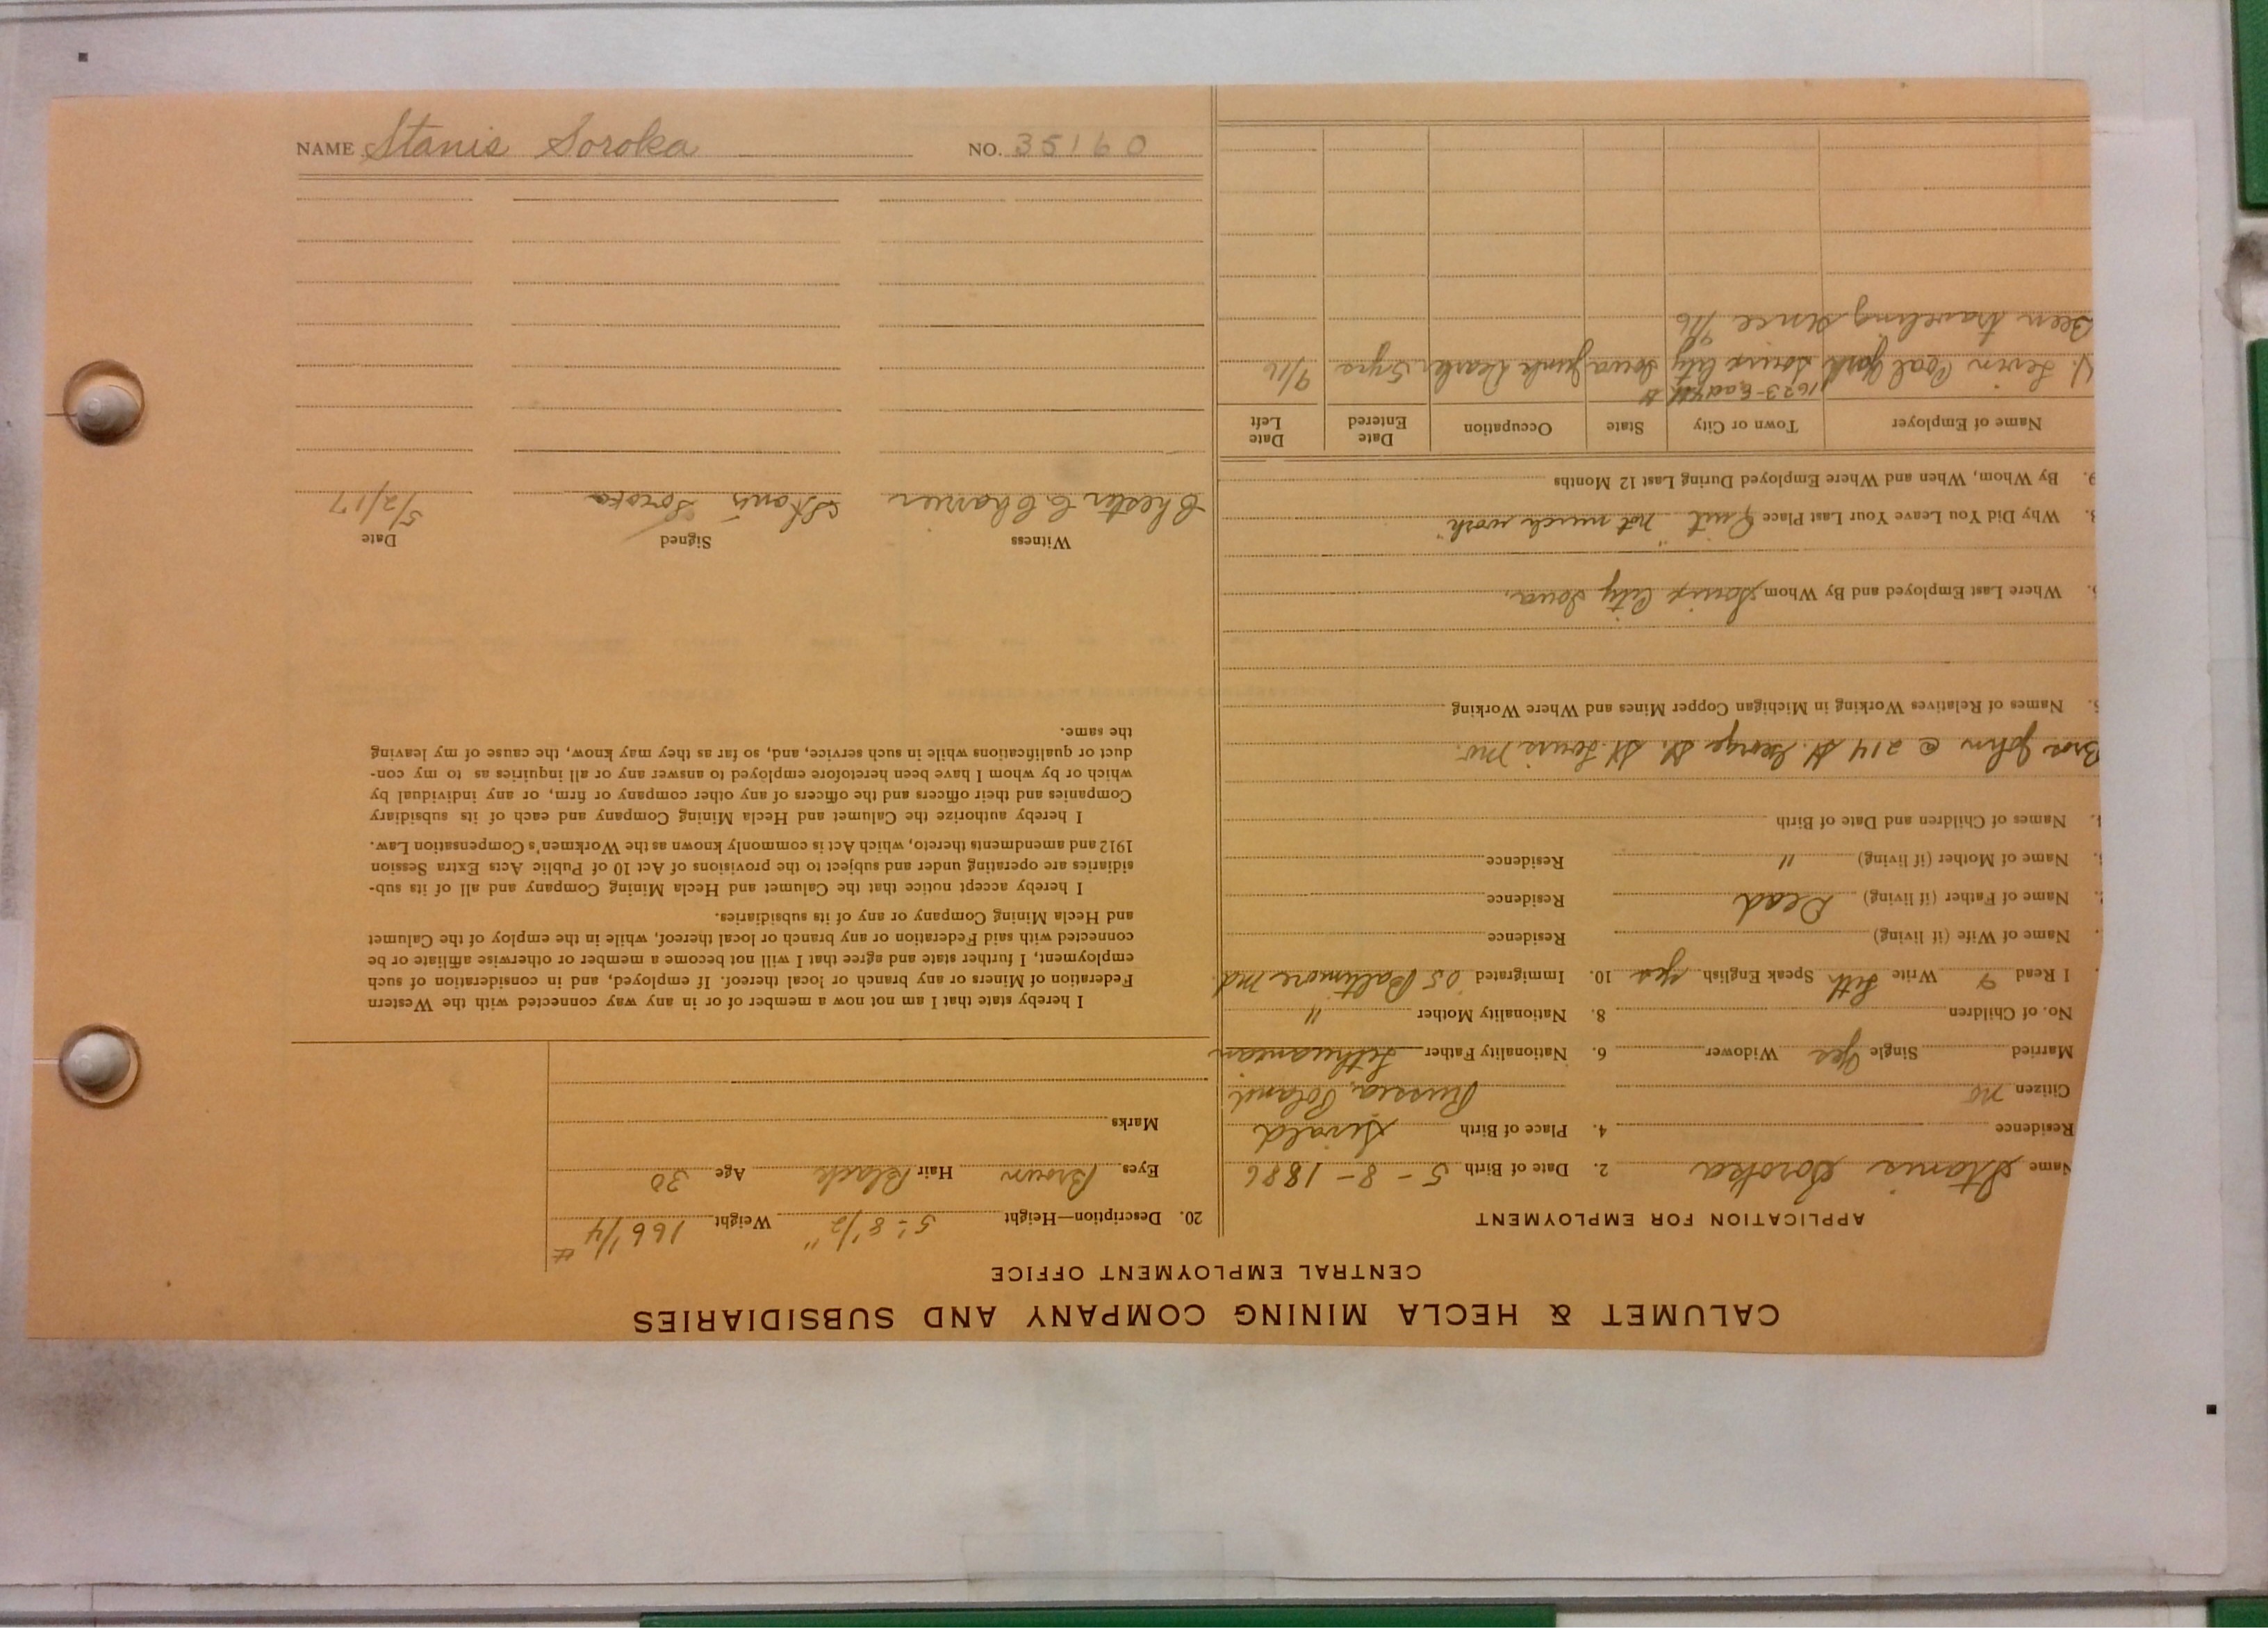 NAME Stanis Soroka NO. 35160
CALUMET & HECLA MINING COMPANY AND SUBSIDIARIES
CENTRAL EMPLOYMENT OFFICE
APPLICATION FOR EMPLOYMENT
Name Stanis Soroka 2. Date of Birth 5-8-1886
Residence 4. Place of Birth
Citizen no Russia, Poland
Married Single Yes Widower 6. Nationality Father Lithuanian
No. of Children 8. Nationality Mother "
I Read & Write Lith Speak English yes 10. Immigrated '05 Baltimore Md.
Name of Wife (if living) Residence
Name of Father (if living) Dead Residence
Name of Mother (if living) " Residence
Names of Children and Date of Birth
Bros John @ 214 St. George St. St. Louis Mo.
Names of Relatives Working in Michigan Copper Mines and Where Working
Where Last Employed and By Whom Souix City Iowa.
Why Did You Leave Your Last Place Quit "not much work"
9. By Whom, When and Where Employed During Last 12 Months
Name of Employer Town or City State Occupation Date Entered Date Left
1623-
Levin Coal Souix City Iowa Junk Dealer 5 yrs 9/16
Been traveling since 9/16
20. Description—Height 5'-8 1/2" Weight 166 1/4 #
Eyes Brown Hair Black Age 30
Marks
I hereby state that I am not now a member of or in any way connected with the Western
Federation of Miners or any branch or local thereof. If employed, and in consideration of such
employment, I further state and agree that I will not become a member or otherwise affiliate or be
connected with said Federation or any branch or local thereof, while in the employ of the Calumet
and Hecla Mining Company or any of its subsidiaries.
I hereby accept notice that the Calumet and Hecla Mining Company and all of its sub-
sidiaries are operating under and subject to the provisions of Act 10 of Public Acts Extra Session
1912 and amendments thereto, which Act is commonly known as the Workmen's Compensation Law.
I hereby authorize the Calumet and Hecla Mining Company and each of its subsidiary
Companies and their officers and the officers of any other company or firm, or any individual by
which or by whom I have been heretofore employed to answer any or all inquiries as to my con-
duct or qualifications while in such service, and, so far as they may know, the cause of my leaving
the same.
Witness Signed Date
Chester C Stanis Soroka 5/2/17